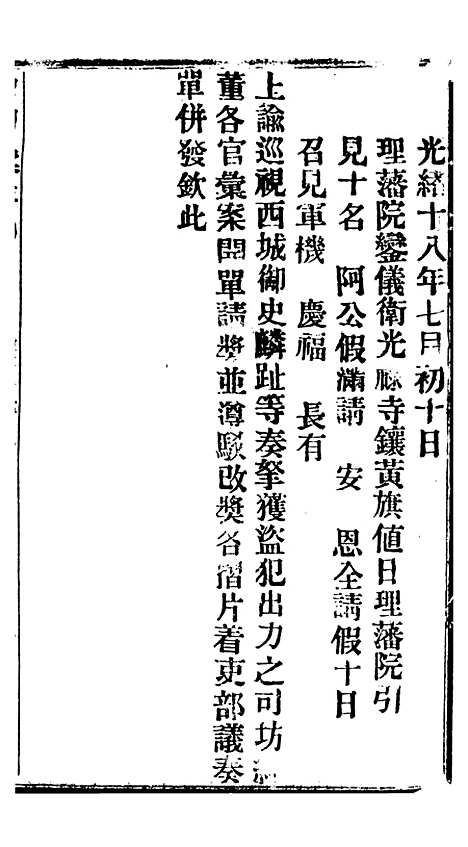 光緒十八年七月初十日
理藩院鑾儀衛光祿寺鑲黃旗值日理藩院引
見十名 阿公假滿請 安 恩全請假十日
召見軍機 慶福 長有
上諭巡視西城御史麟趾等奏拏獲盜犯出力之司坊
董各官彙案開單請獎並遵駁改獎各摺片着吏部議奏
單併發欽此